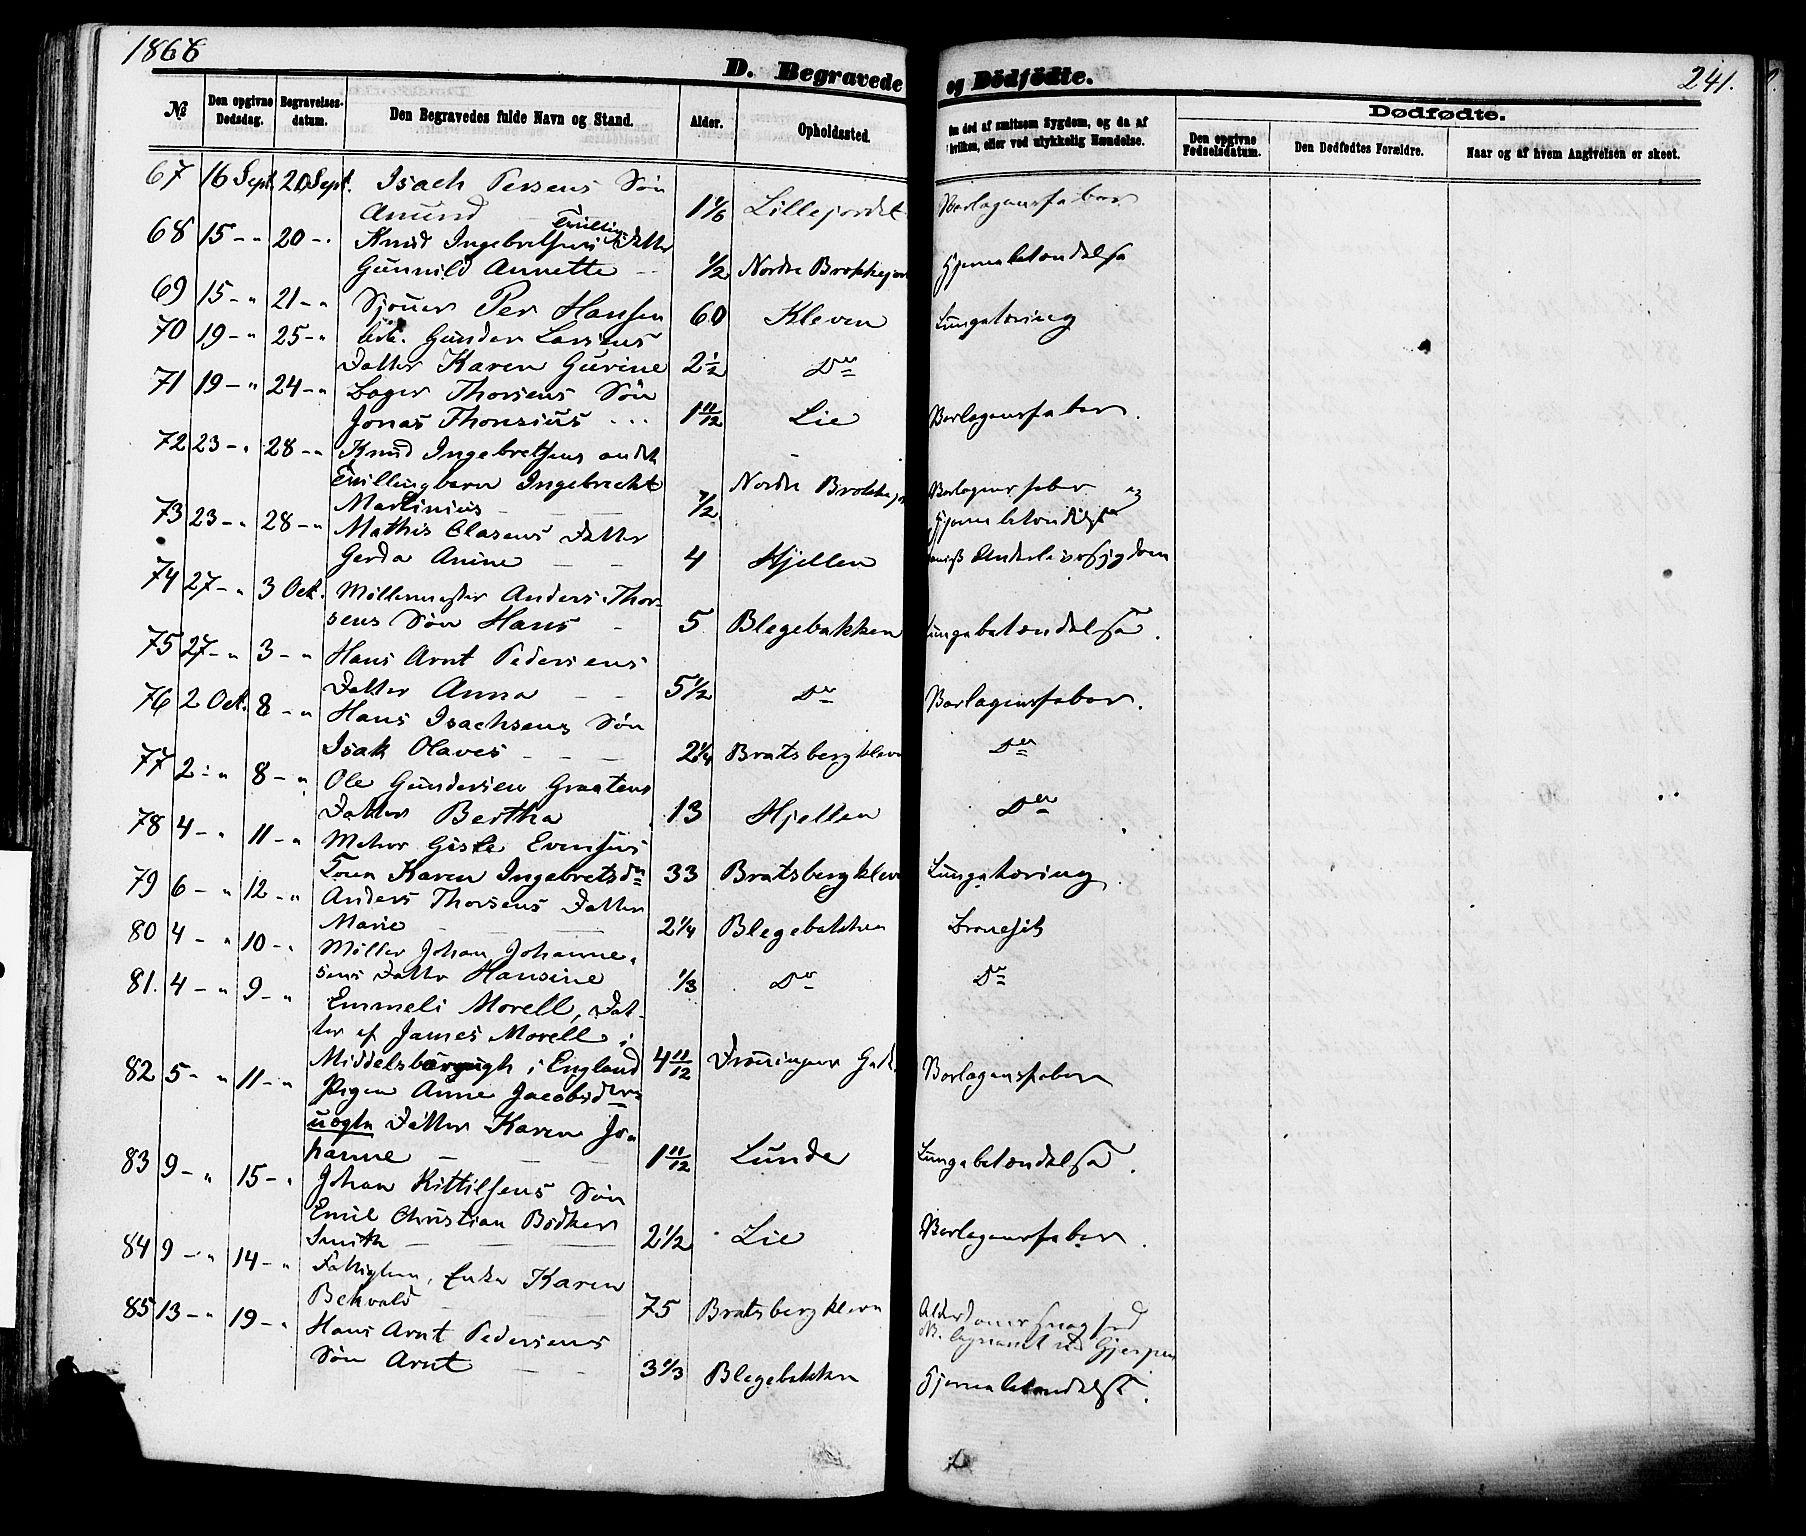 1868
D. Begravede og Dödfödte.
241.
№ Den opgivne Dødsdag. Begravelses-datum. Den Begravedes fulde Navn og Stand. Alder. Opholdssted. Om død af smitsom Sygdom, og da af hvilken, eller ved ulykkelig Hændelse.
Dødfødte.
Den opgivne Fødselsdatum. Den Dødfødtes Forældre. Naar og af hvem Angivelsen er skeet.
67 16 Sept. 20 Sept. Isach Persens Søn
Amund 1 1/6 Lillejordet Barlagensfeber
68 15 - " 20 - " Knud Ingebretsens Tvilling Datter
Gunnild Annette - - 1/2 Nordre Brokkejor Hjernebetændelse
69 15 - " 21 - " Sjouer Per Hansen 60 Kleven Lungetæring
70 19 - " 25 - " Arb. Gunder Larsens
Datter Karen Gurine 2 1/2 Do
71 19 - " 24 - " Bager Thorsens Søn
Jonas Thonsius - - - 1 11/12 Lie Barlagensfeber.
72 23 - " 28 - " Knud Ingebretsens andet
Tvillingbarn Ingebrecht
Martinius - - 1/2 Nordre Brokkejor Barlagensfeber og
Hjernebetændelse
73 23 - " 28 - " Mathis Clasens Datter
Gerda Anine - - 4 Hjellen Underlivssygdom
74 27 - " 3 Oct. Møllemester Anders Thor-
sens Søn Hans - 5 Blegebakken Lungebetændelse.
75 27 - " 3 - " Hans Arnt Pedersens
Datter Anna - - 5 1/2 Do Barlagensfeber.
76 2 Oct. 8 - " Hans Isachsens Søn
Isak Olaves - - - 2 1/4 Bratsbergkleven Do
77 2 - " 8 - " Ole Gundersen Graatens
Datter Bertha 13 Hjellen Do
78 4 - " 11 - " Matros Gisle Evensens
Kone Karen Ingebretsdr 33 Bratsbergkleven Lungetæring.
79 6 - " 12 - " Anders Thorsens Datter
Marie - - 2 1/4 Blegebakken Bronchit
80 4 - " 10 - " Møller Johan Johanne-
sens Datter Hansine 1/3 Do Do
81. 4 - " 9 - " Emmeli Morell, Dat-
ter af James Morell i
Middelsborough i England 4 11/12 Gade. Barlagensfeber
82 5 - " 11 - " Pigen Anne Jacobsdrs
uægte Datter Karen Jo-
hanne - - - 1 11/12 Lunde Lungebetændelse.
83 9 - " 15 - " Johan Kittilsens Søn
Emil Christian Bødker
Smith - - 2 1/2 Lie Barlagensfeber.
84 9 - " 14 - " Fattiglem, Enke Karen
Bekvald - - 75 Bratsbergkleven Alderdomssvaghed
NB. begravet ved Gjerpen
85 13 - " 19 - " Hans Arnt Pedersens
Søn Arnt - - 3 1/3 Blegebakken Hjernebetændelse.